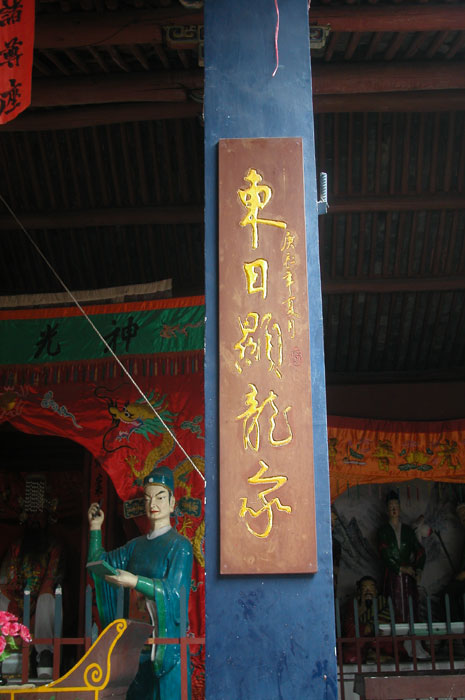 東日顯龍家
庚辰年夏月
神光